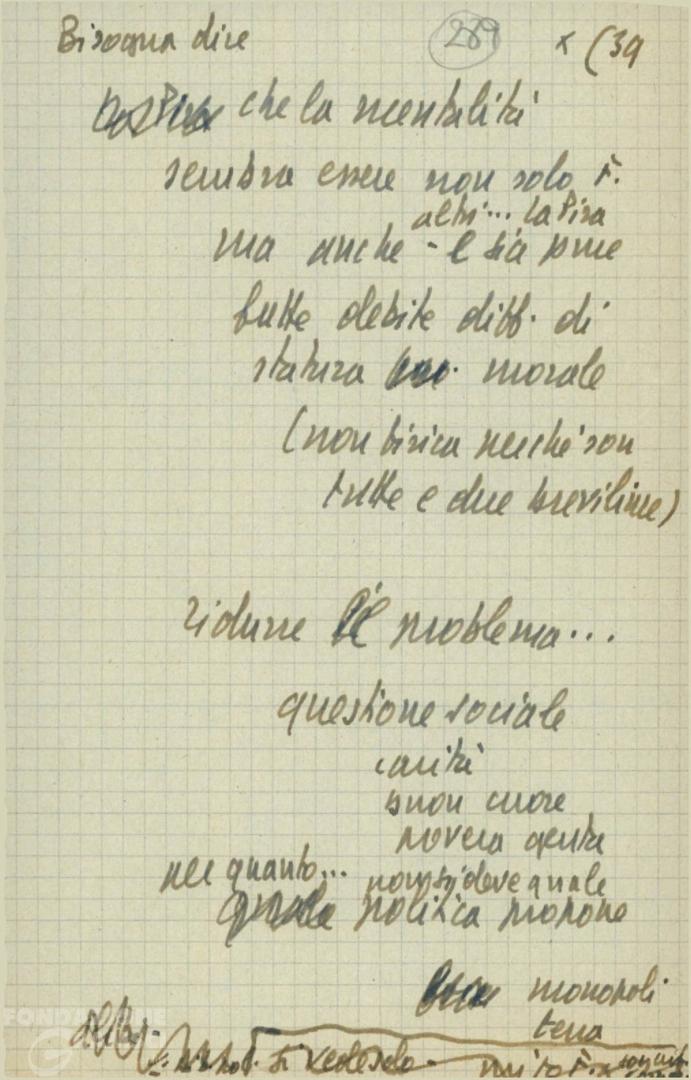 Bisogna dire
289
x (39
che la mentalità
sembra essere non solo F.
altri... La Pira
ma anche - e sia pure
tutte debite diff. di
statura morale
(non fisica perché son
tutte e due brevilinee)
ridurre il problema...
questione sociale
carità
buon cuore
povera gente
per quanto... non si deve quale
politica propone
monopoli
terra
si vede solo
FONDAZIONE